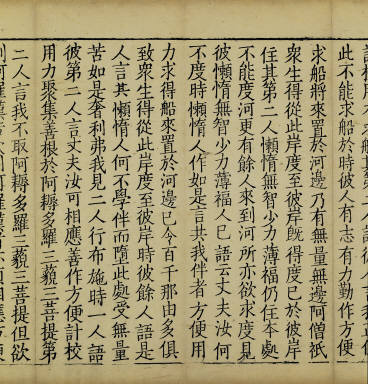 此不能求船於時彼人有志有力勤作方便
求船將來置於河邊乃有無量無邊阿僧祇
衆生得從此岸度至彼岸旣得度已於彼岸
住其第二人懶惰無智少力薄福仍住本處
不能度河更有餘人來到河所亦欲求度見
彼懶惰無智少力薄福人已語云丈夫汝何
不度時懶惰人作如是言共我伴者方便用
力求得船來置於河邊已令百千那由多俱
致衆生得從此岸度至彼岸時彼餘人語是
人言其懶惰人何不學伴而墮此處受無量
苦如是舍利弗我見二人行布施時一人語
彼第二人言丈夫汝可相應善作方便計校
用力聚集善根於阿耨多羅三藐三菩提第
二人言我不取阿耨多羅三藐三菩提但欲